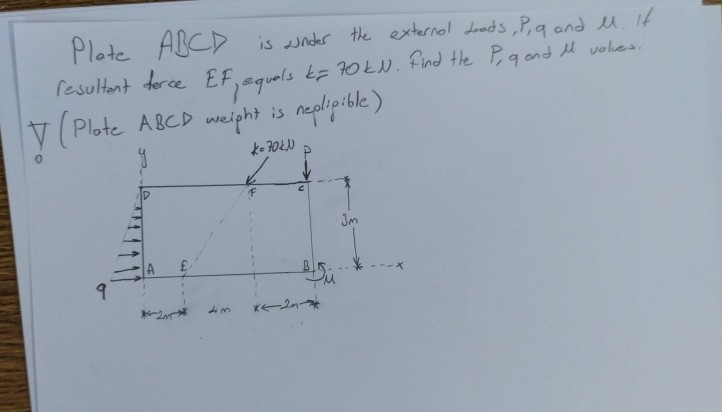 Plate ABCD is under the external loads, P, q and M. If
resultant force EF, equals k= 70kN. Find the P, q and M values.
! (Plate ABCD weight is negligible)
y
k=70kN
P
D
F
C
3m
A
E
B
x
M
q
2m
4m
2m